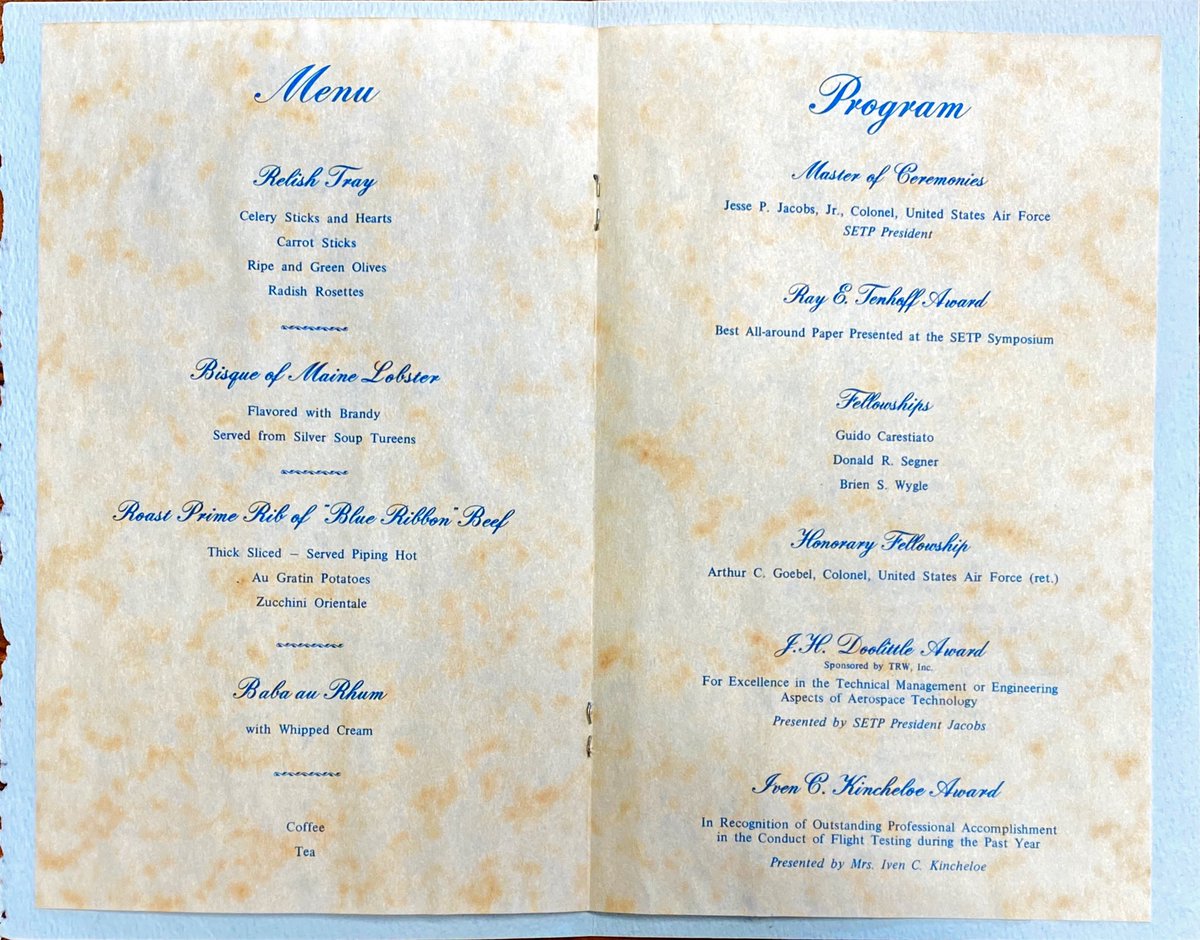 Menu
Relish Tray
Celery Sticks and Hearts
Carrot Sticks
Ripe and Green Olives
Radish Rosettes
Bisque of Maine Lobster
Flavored with Brandy
Served from Silver Soup Tureens
Roast Prime Rib of "Blue Ribbon" Beef
Thick Sliced – Served Piping Hot
Au Gratin Potatoes
Zucchini Orientale
Baba au Rhum
with Whipped Cream
Coffee
Tea
Program
Master of Ceremonies
Jesse P. Jacobs, Jr., Colonel, United States Air Force
SETP President
Ray E. Tenhoff Award
Best All-around Paper Presented at the SETP Symposium
Fellowships
Guido Carestiato
Donald R. Segner
Brien S. Wygle
Honorary Fellowship
Arthur C. Goebel, Colonel, United States Air Force (ret.)
J.H. Doolittle Award
Sponsored by TRW, Inc.
For Excellence in the Technical Management or Engineering
Aspects of Aerospace Technology
Presented by SETP President Jacobs
Iven C. Kincheloe Award
In Recognition of Outstanding Professional Accomplishment
in the Conduct of Flight Testing during the Past Year
Presented by Mrs. Iven C. Kincheloe